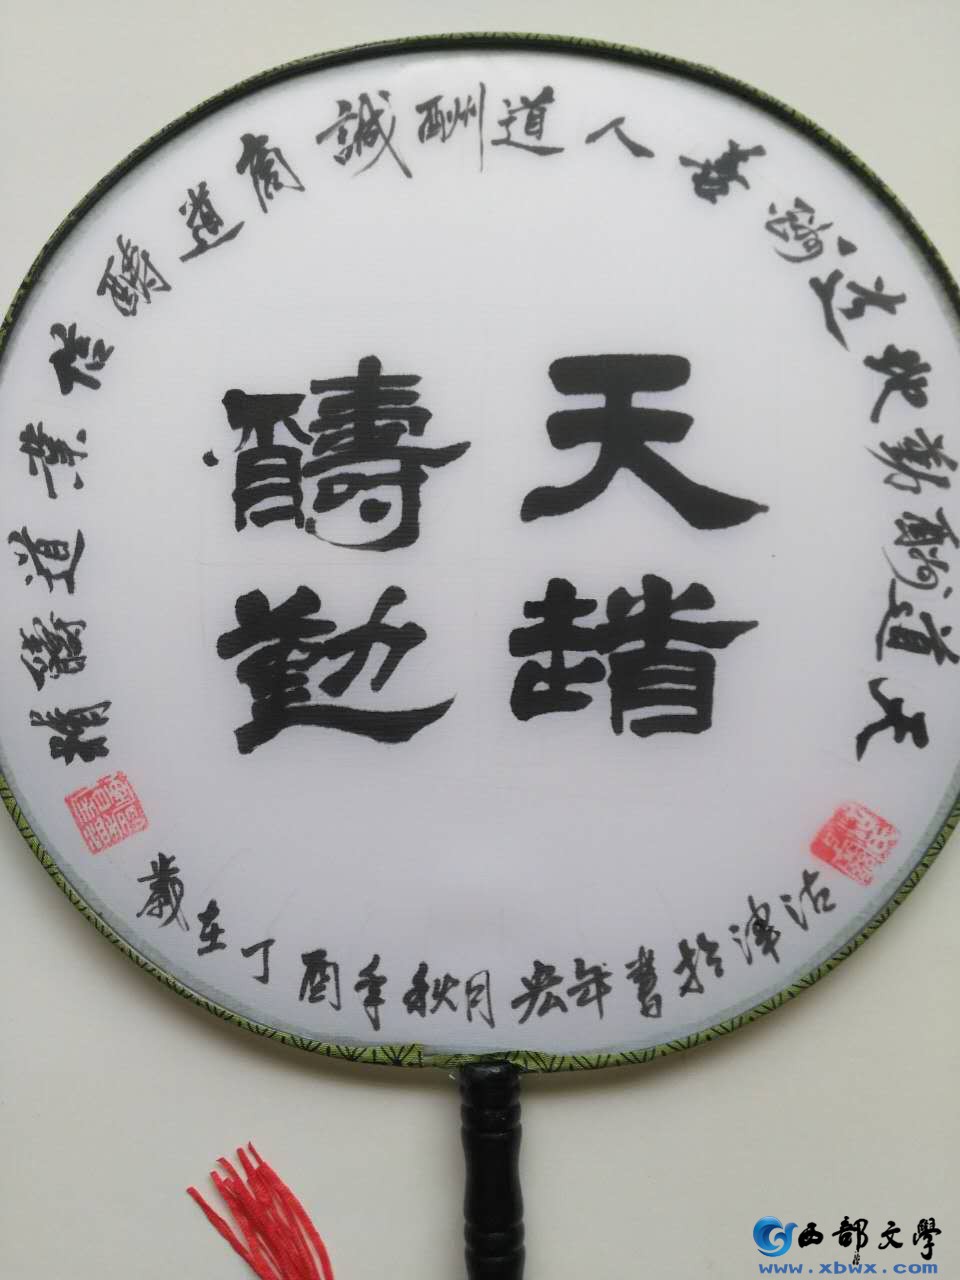 天道
醻勤
天道酬勤地道酬善人道酬誠商道醻信業道醻精
歲在丁酉季秋月宏年書於津沽
西部文學
www.xbwx.com